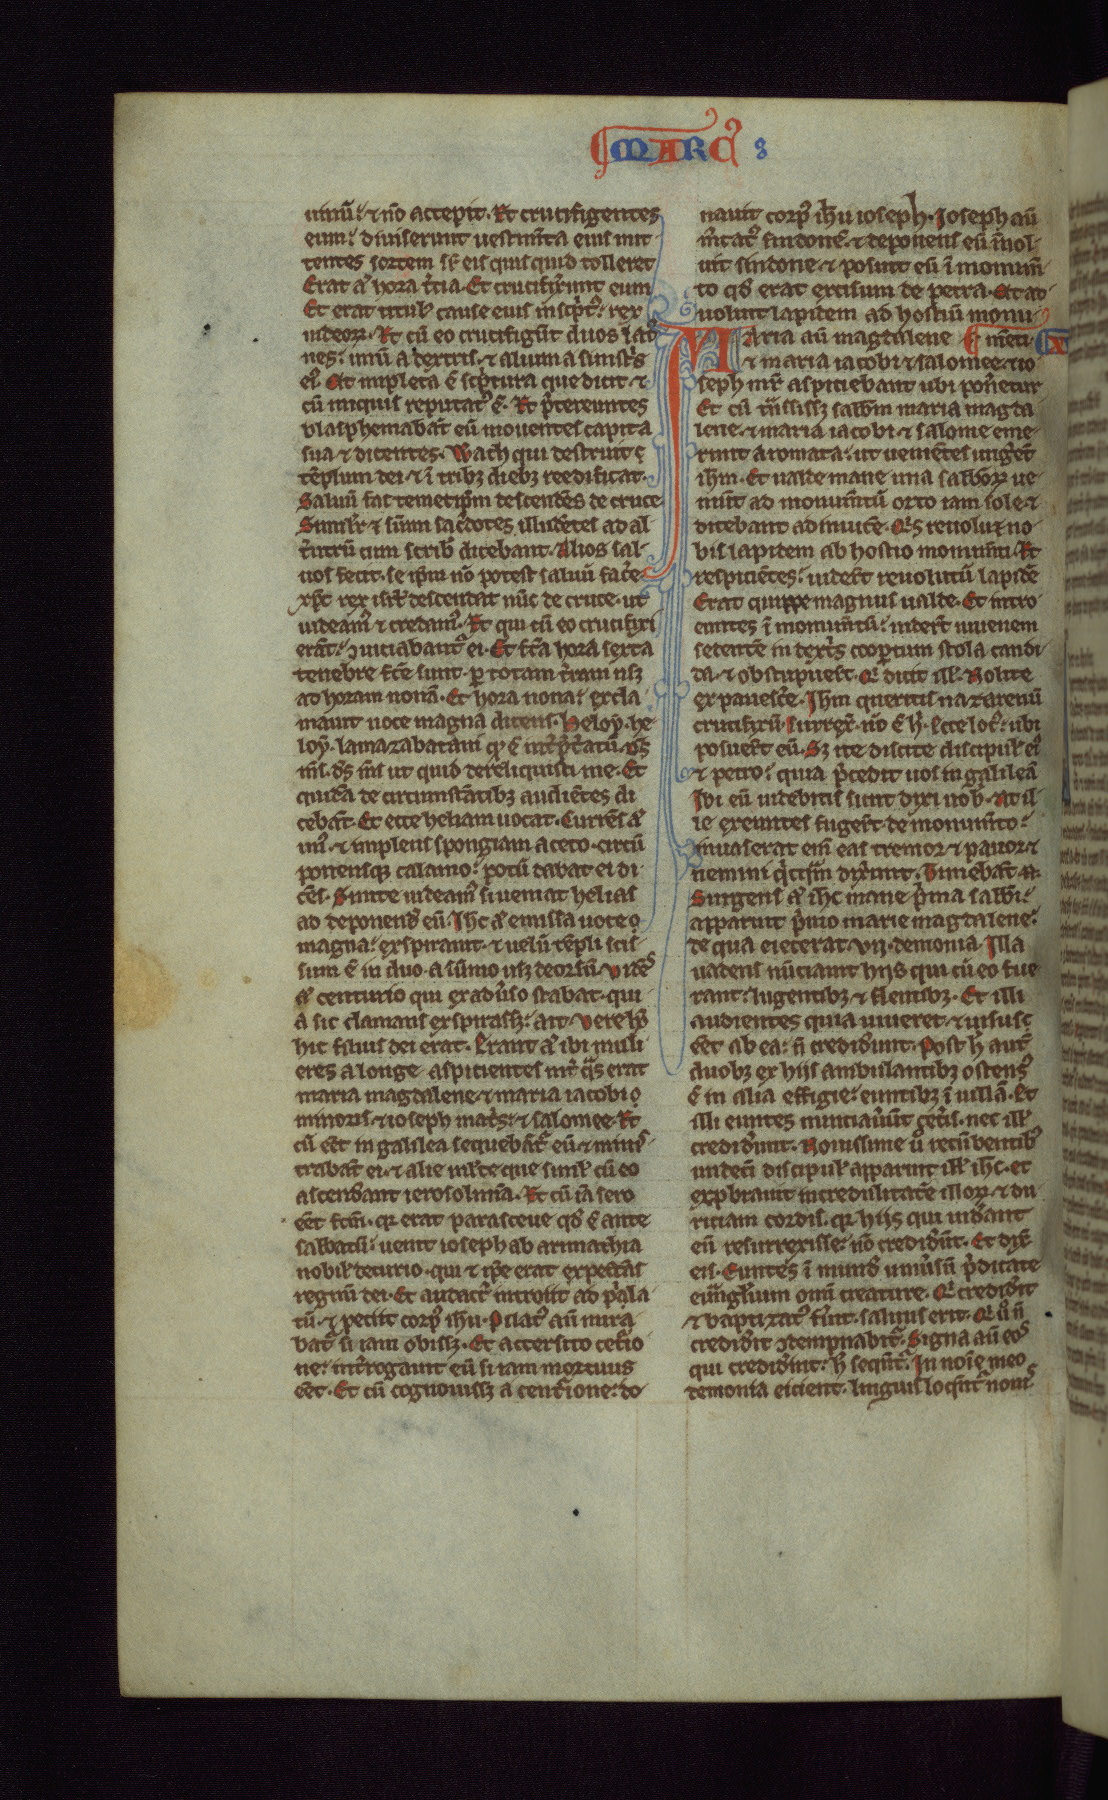 MARC9
uinū. ⁊ nō accepit. Et crucifigentes
eum. diuiserunt uestim̄ta eius mit
tentes sortem sr̄ eis quis quid tolleret
Erat aͥ hora t̄cia. Et crucifixer̄unt eum
Et erat titul9 cause eius inscͥpt9. rex
iudeoꝝ. Et cū eo crucifigūt duos lat̄
nes. unū a dextris. ⁊ alium a sinistͥs
ei9. Et impleta ē scͥptura que dicit. ⁊
cū iniquis reputat9 ē. Et p̄tereuntes
blasphemabāt eū mouentes capita
sua ⁊ dicentes. Wach qui destruit
tēplum dei ⁊ ī tribꝫ diebꝫ reedificat.
Saluū fac temetip̄m descendēs de cruce
Similr̄ ⁊ sūmi sac̄dotes illudētes ad al
t̄utrū cum scrib̄ dicebant. Alios sal
uos fecit. se ip̄m nō potest saluū fac̄e
xp̄c rex isrl̄ descendat nūc de cruce. ut
uideam9 ⁊ credam9. Et qui cū eo crucifixi
erāt. ꝯuiciabant9 ei. Et fc̄a hora sexta
tenebre fc̄e sunt. ꝑ totam t̄ram usꝫ
ad horam nonā. Et hora nona. excla
mauit uoce magna dicens. Heloy. he
loy. lamazabatani qͥ ē int̄p̄tatū. ds̄
ms̄. ds̄ ms̄ ut quid dereliquisti me. Et
quidā de circumstātibꝫ audiētes di
cebāt. Et ecce heliam uocat. Currēs aͥ
un9. ⁊ implens spongiam aceto. circū
ponensqꝫ calamo. potū dabat ei di
cēs. Sinite uideam9 si ueniat helias
ad deponend̄ eū. Ihc aͥ emissa uoce
magna. expirauit. ⁊ uelū tēpli scis
sum ē in duo. a sūmo usꝫ deorsū. Vidēs
aͥ centurio qui exaduͥso stabat. qui
a sic clamans expirassꝫ. ait. Vere h9
hic filius dei erat. Erant aͥ ibi muli
eres alonge aspicientes int̄ qͣs erat
maria magdalene. ⁊ maria iacobi
minoris. ⁊ ioseph mat̄s. ⁊ salomee. Et
cū eēt in galilea sequebāt̄ eū ⁊ minis
trabāt ei. ⁊ alie ml̄te que simul̄ cū eo
ascenderant ierosolimā. Et cū iā sero
eēt fc̄m. qͥ erat parasceue qd̄ ē ante
sabbatū. uenit ioseph ab arimathia
nobil̄ decurio. qui ⁊ ip̄e erat expectās
regnū dei. Et audact̄ introiit ad pͥla
tū. ⁊ petiit corp9 ihū. Pilat9 aū mira
bat̄ si iam obissꝫ. Et accersito cet̄io
ne. int̄rogauit eū si iam mortuus
eēt. Et cū cognouissꝫ a cent̄ione. do-
nauit corp9 ihū ioseph. Ioseph aū
m̄cat9 sindonē. ⁊ deponens eū inuol
uit sindone. ⁊ posuit eū ī monum̄
to qd̄ erat excisum de petra. Et ad
uoluit lapidem ad hostiū monu
Maria aū magdalene m̄ti.
⁊ maria iacobi ⁊ salomee. ⁊ io
seph mr̄ aspiciebant ubi poneretur
Et cū tͣnsissꝫ sabb̄m maria magda
lene. ⁊ maria iacobi. ⁊ salome eme-
runt aromata. ut ueniētes unget̄
ihm̄. Et ualde mane una sabb̄oꝝ ue
niūt ad monum̄tū orto iam sole. ⁊
dicebant adinuicē. Qͥs reuoluꝫ no
bis lapidem ab hostio monum̄ti. Et
respiciētes. uider̄t reuolutū lapidē
Erat quippe magnus ualde. Et intro
euntes ī monum̄tū. uider̄t iuuenem
sedentē in dext̄s coopertum stola candi
da. ⁊ obstupuer̄t. Qͥ dicit ill̄. Nolite
expauesc̄e. Ihm̄ queritis nazarenū
crucifixū. surrex̄. nō ē h̄. Ecce loc9. ubi
posuer̄t eū. Sꝫ ite dicite discipul̄ ei9
⁊ petro. quia p̄cedit uos in galileā
Ibi eū uidebitis sicut dixi uob̄. At il
le exeuntes fuger̄t de monum̄to.
inuaserat eni eas tremor ⁊ pauor. ⁊
nemini qͥcqͣm dix̄unt. Timebāt.
Surgens aͥ ihc mane p̄ma sabb̄i.
apparuit p̄mo marie magdalene.
de qua eiecerat. vij. demonia. Illa
uadens nūciauit hijs qui cū eo fue
rant. lugentibꝫ ⁊ flentibꝫ. Et illi
audientes quia uiueret. ⁊ uisus
eēt ab ea. n̄ crediderunt. Post h̄ aut̄
duobꝫ ex hijs ambulantibꝫ ostens9
ē in alia effigie. euntibꝫ ī uillā. Et
illi euntes nunciauͥūt cet̄is. nec ill̄
credid̄unt. Nouissime ū recūbentib9
undecī discipul̄ apparuit ill̄ ihc. et
exp̄brauit incredulitatē illoꝝ. ⁊ du
riciam cordis. qͥ hijs qui uid̄ant
eū resurrexisse. nō credid̄ūt. Et dix̄
eis. Euntes ī mund̄ uniūsū p̄dicate
euͣgl̄ium omī creature. Qͥ credid̄it
⁊ baptizat9 fūit. saluus erit. Qͥ ū n̄
credid̄it ꝯtempnabit̄. Signa aū eos
qui credid̄int. h̄ seqͣnt̄. In noīe meo
demonia eicient. linguis loqͣnt̄ nouis